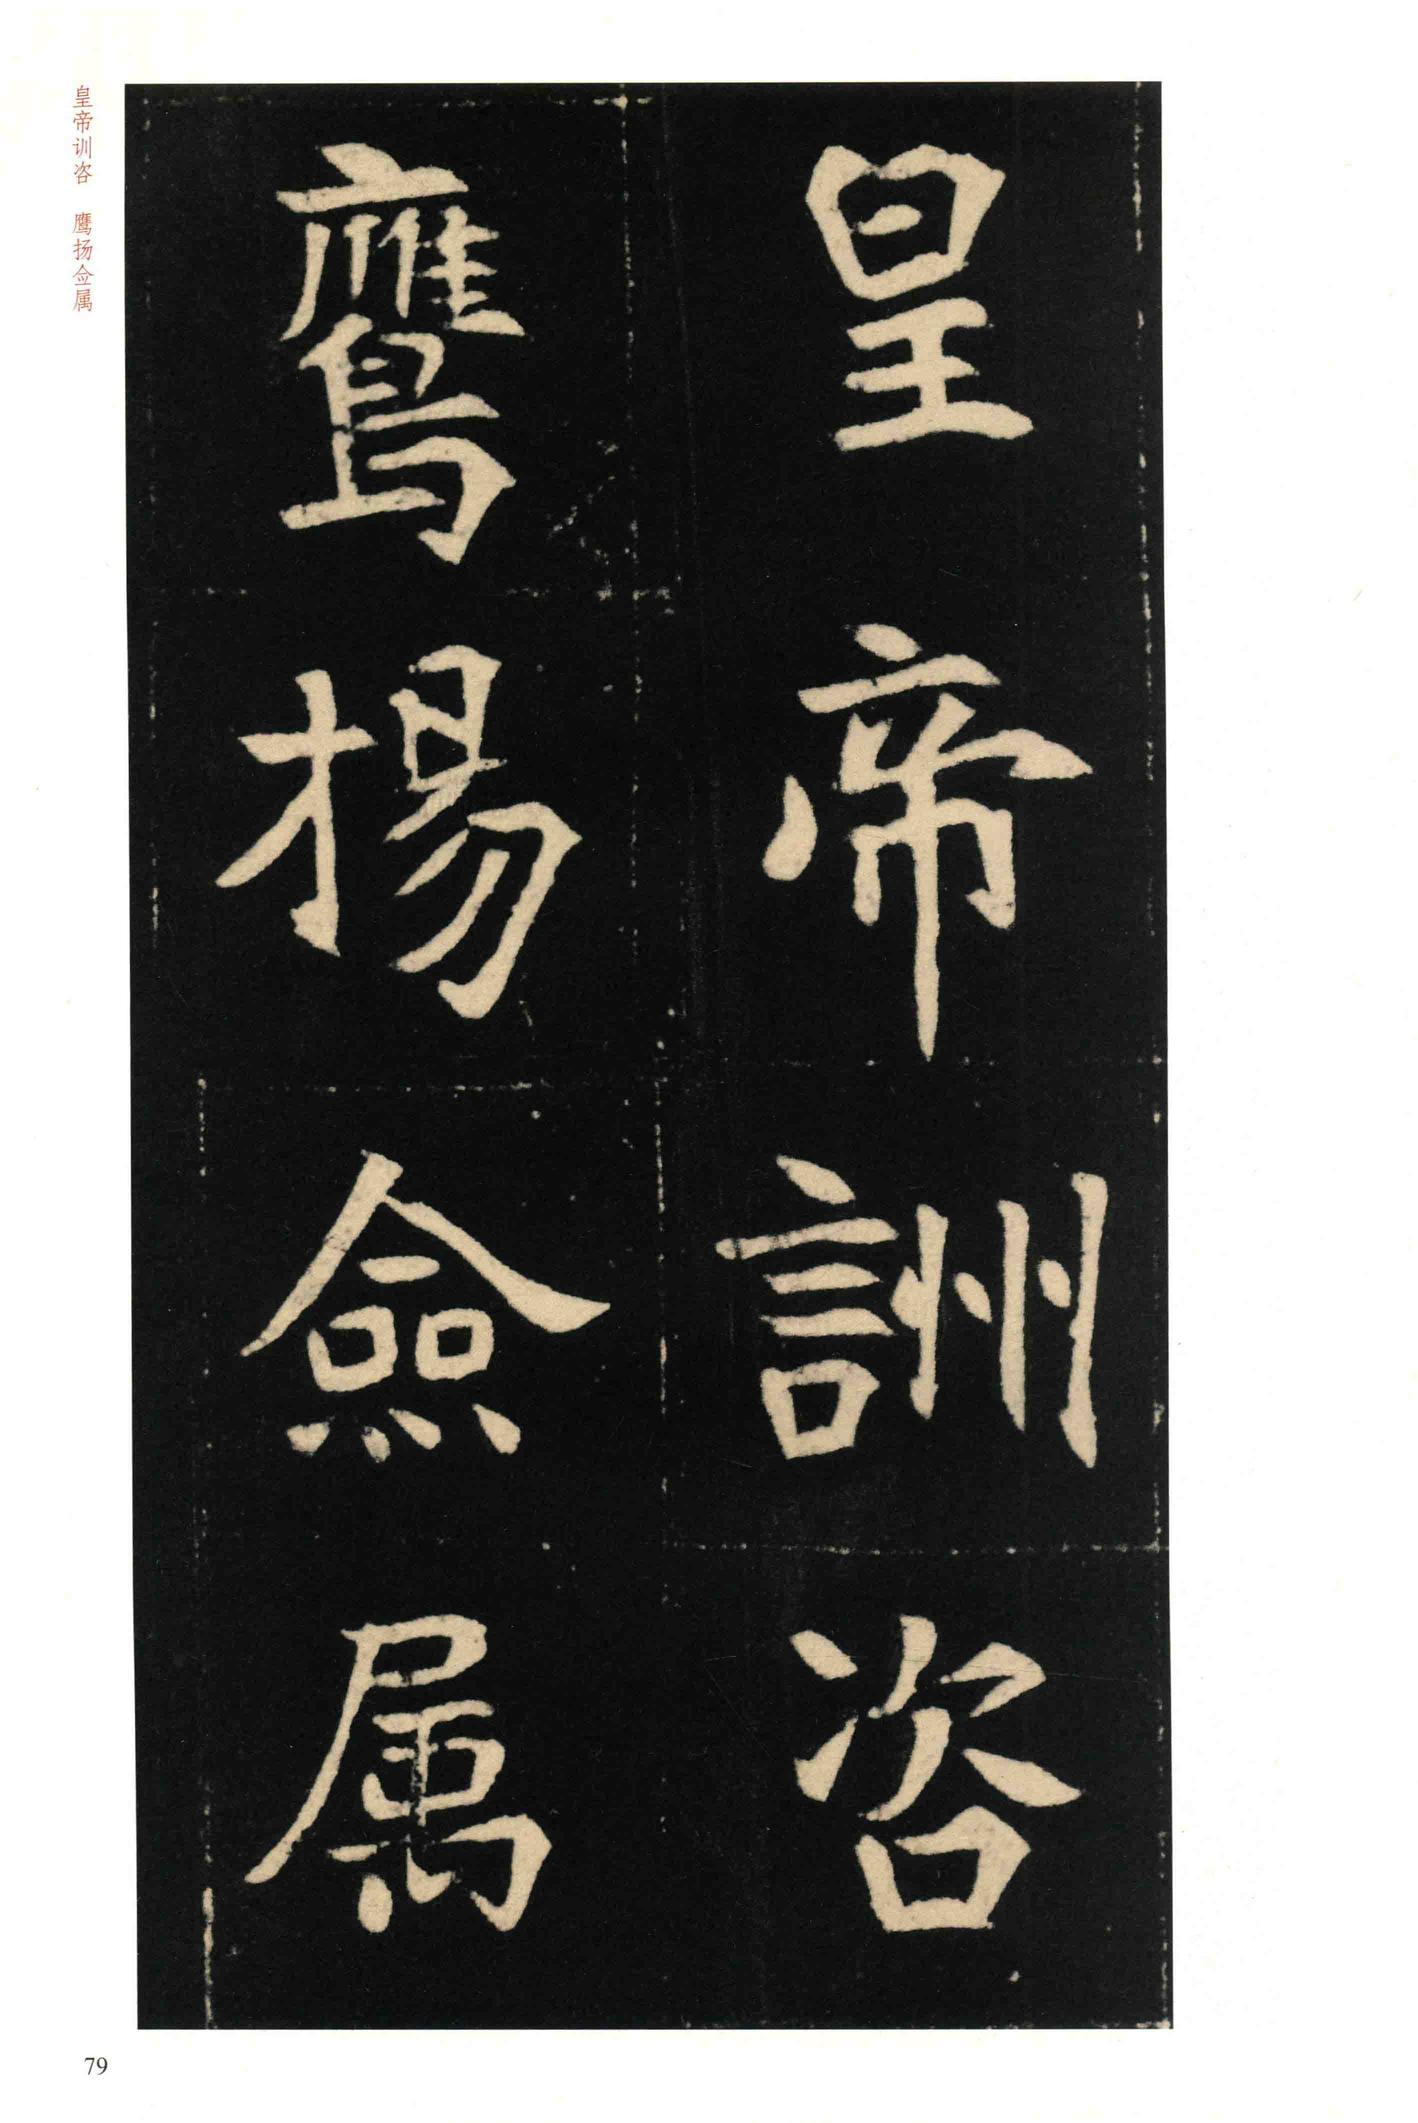 皇帝訓咨
鷹揚僉属
皇帝训咨 鹰扬佥属
79